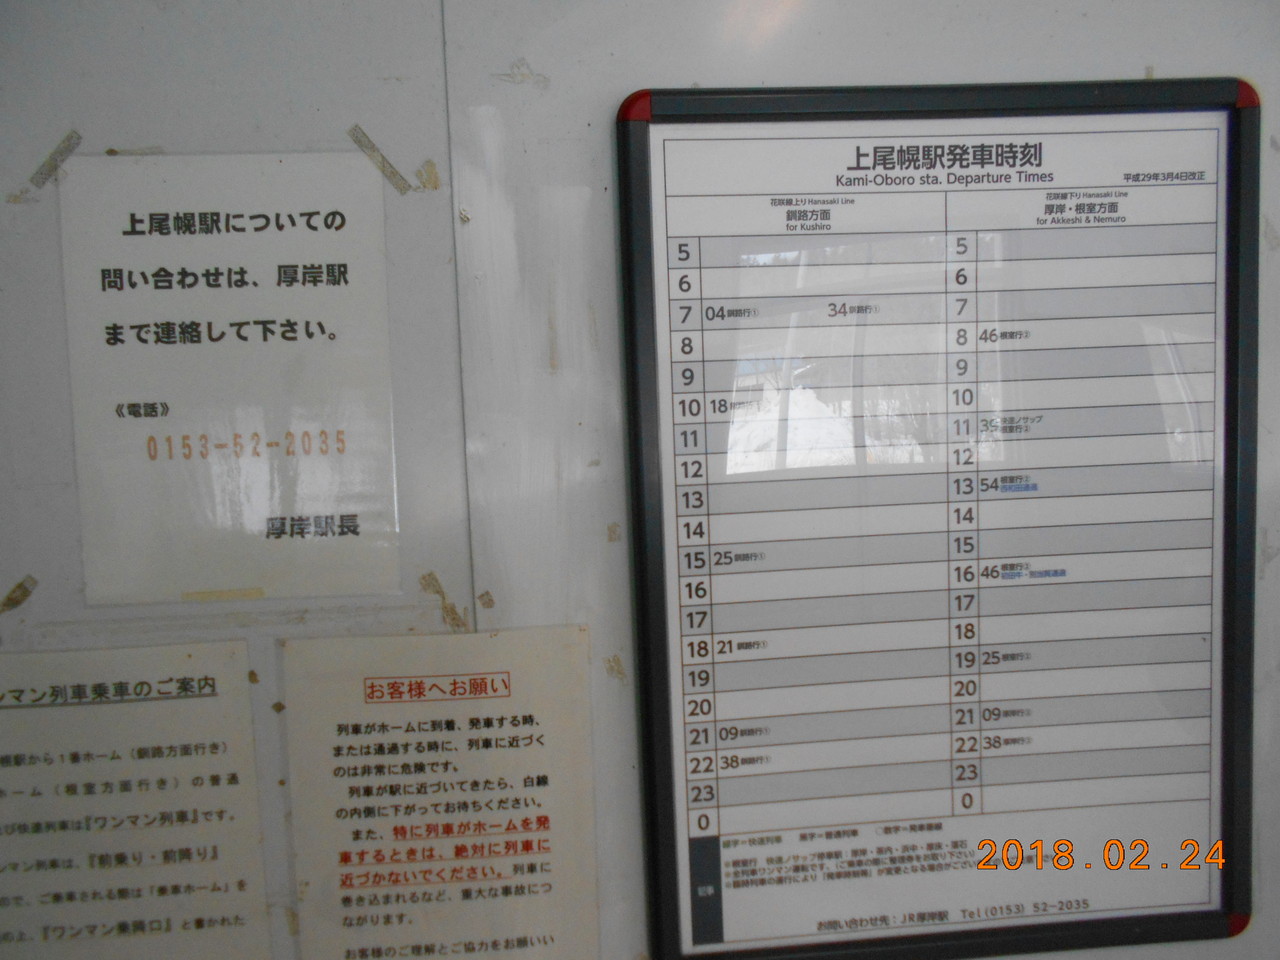 上尾幌駅についての
問い合わせは、厚岸駅
まで連絡して下さい。
《電話》
0153-52-2035
厚岸駅長
ンマン列車乗車のご案内
幌駅から1番ホーム（釧路方面行き）
ホーム（根室方面行き）の普通
び快速列車は『ワンマン列車』です。
ンマン列車は、『前乗り・前降り』
ので、ご乗車される際は「乗車ホーム」を
の上、『ワンマン乗降口』と書かれた
お客様へお願い
列車がホームに到着、発車する時、
または通過する時に、列車に近づく
のは非常に危険です。
列車が駅に近づいてきたら、白線
の内側に下がってお待ちください。
また、特に列車がホームを発
車するときは、絶対に列車に
近づかないでください。列車に
巻き込まれるなど、重大な事故につ
ながります。
お客様のご理解とご協力をお願いい
上尾幌駅発車時刻
Kami-Oboro sta. Departure Times
平成29年3月4日改正
花咲線上り Hanasaki Line
釧路方面
for Kushiro
花咲線下り Hanasaki Line
厚岸・根室方面
for Akkeshi & Nemuro
5 5
6 6
7 04 釧路行① 34 釧路行① 7
8 8 46 根室行②
9 9
10 18 10
11 11 39 快速ノサップ
根室行②
12 12
13 13 54 根室行②
14 14
15 25 釧路行① 15
16 16 46 根室行②
初田牛・別当賀通過
17 17
18 21 釧路行① 18
19 19 25 根室行②
20 20
21 09 釧路行① 21 09 厚岸行②
22 38 釧路行① 22 38 厚岸行②
23 23
0 0
記事
緑字=快速列車 黒字=普通列車 ○数字=発車番線
※根室行 快速ノサップ停車駅：厚岸・茶内・浜中・厚床・落石
※全列車ワンマン運転です。（ご乗車の際に整理券をお取り下さい）
※臨時列車の運行により「発車時刻」が変更となる場合がござい
お問い合わせ先：JR厚岸駅 Tel (0153) 52-2035
2018.02.24